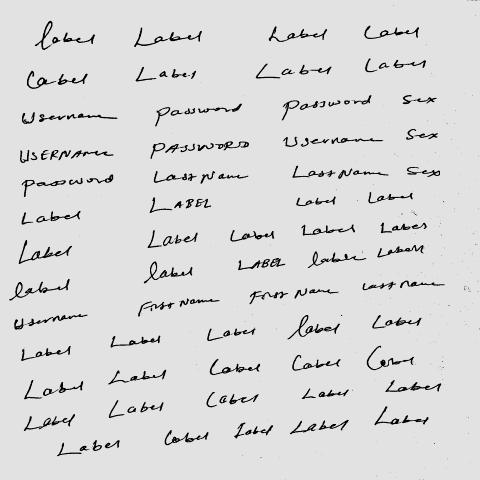 label Label Label Label
Label Label Label Label
Username password password Sex
USERNAME PASSWORD Username Sex
password Last Name Last Name Sex
Label LABEL Label Label
Label Label Label Label Label
label label LABEL label Label
Username First Name First Name Last name
Label Label Label label Label
Label Label Label Label Label
Label Label Label Label Label
Label Label Label Label Label